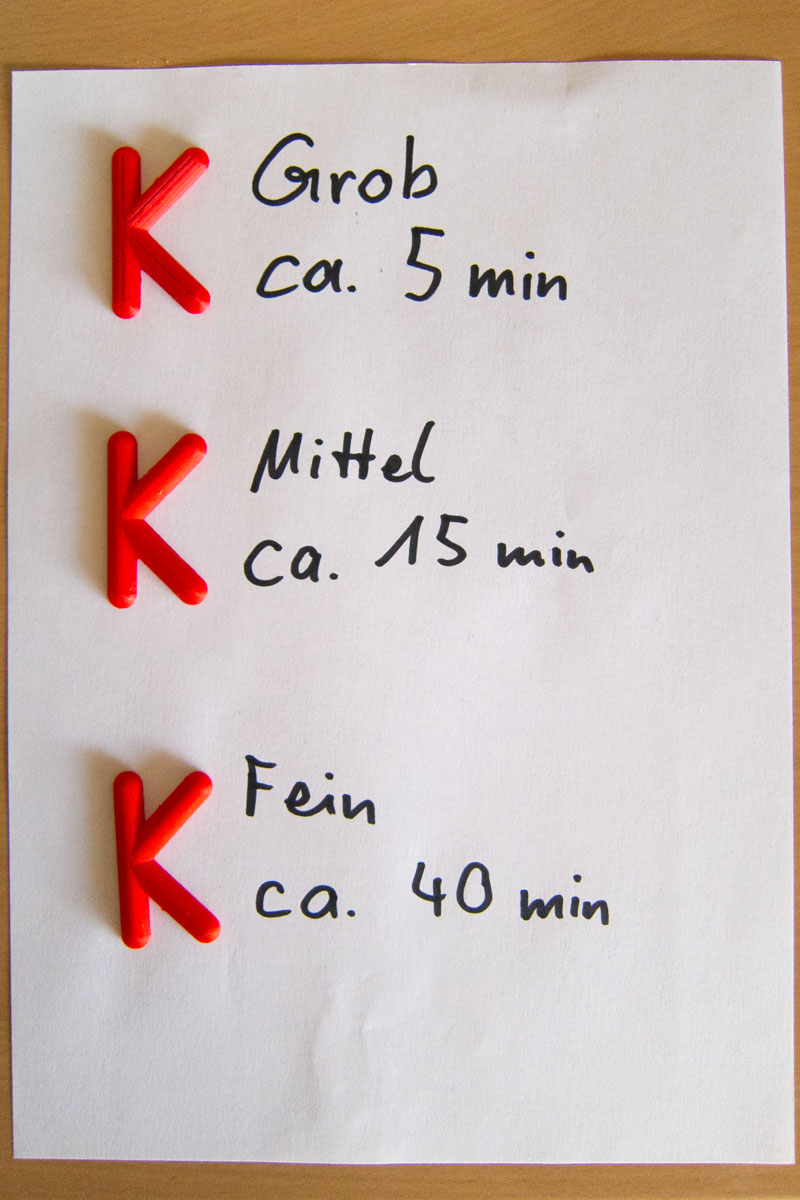 K Grob
ca. 5 min
K Mittel
ca. 15 min
K Fein
ca. 40 min